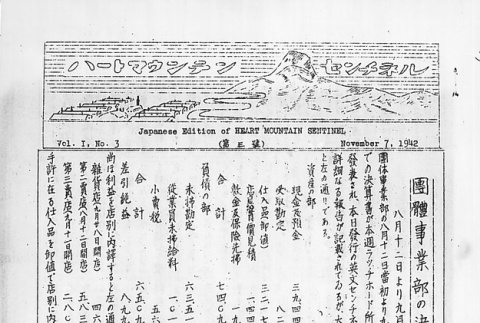 ハートマウンテン センチネル
Japanese Edition of HEART MOUNTAIN SENTINEL
Vol. I, No. 3
(第三號)
November 7, 1942
團體事業部の決
八月十二日より九月
團体事業部の八月十二日當初より九
での決算書が本週ラッチホード所
發表され、本日發行の英文センチネ
詳細なる報告が記載されて
と左の通りである。
資産の部
現金及預金 三九四
受取勘定 八二
仕入品(卸値) 三二一七
店屋賣備見積 一四四
敷金及保險先拂
合計 七四〇九
負債の部
未拂勘定 六三五一
從業員未拂給料 一〇一
小賣税
合計 六五〇九
差引純益 八九九
尚ほ利益を店別に内譯すると左の通
雜貨店(九月廿八日開店) 四六
第二賣店(八月廿一日開店) 五八三
第一賣店(八月十二日開店) 二八〇
手許に在る仕入品を卸値で店別に内